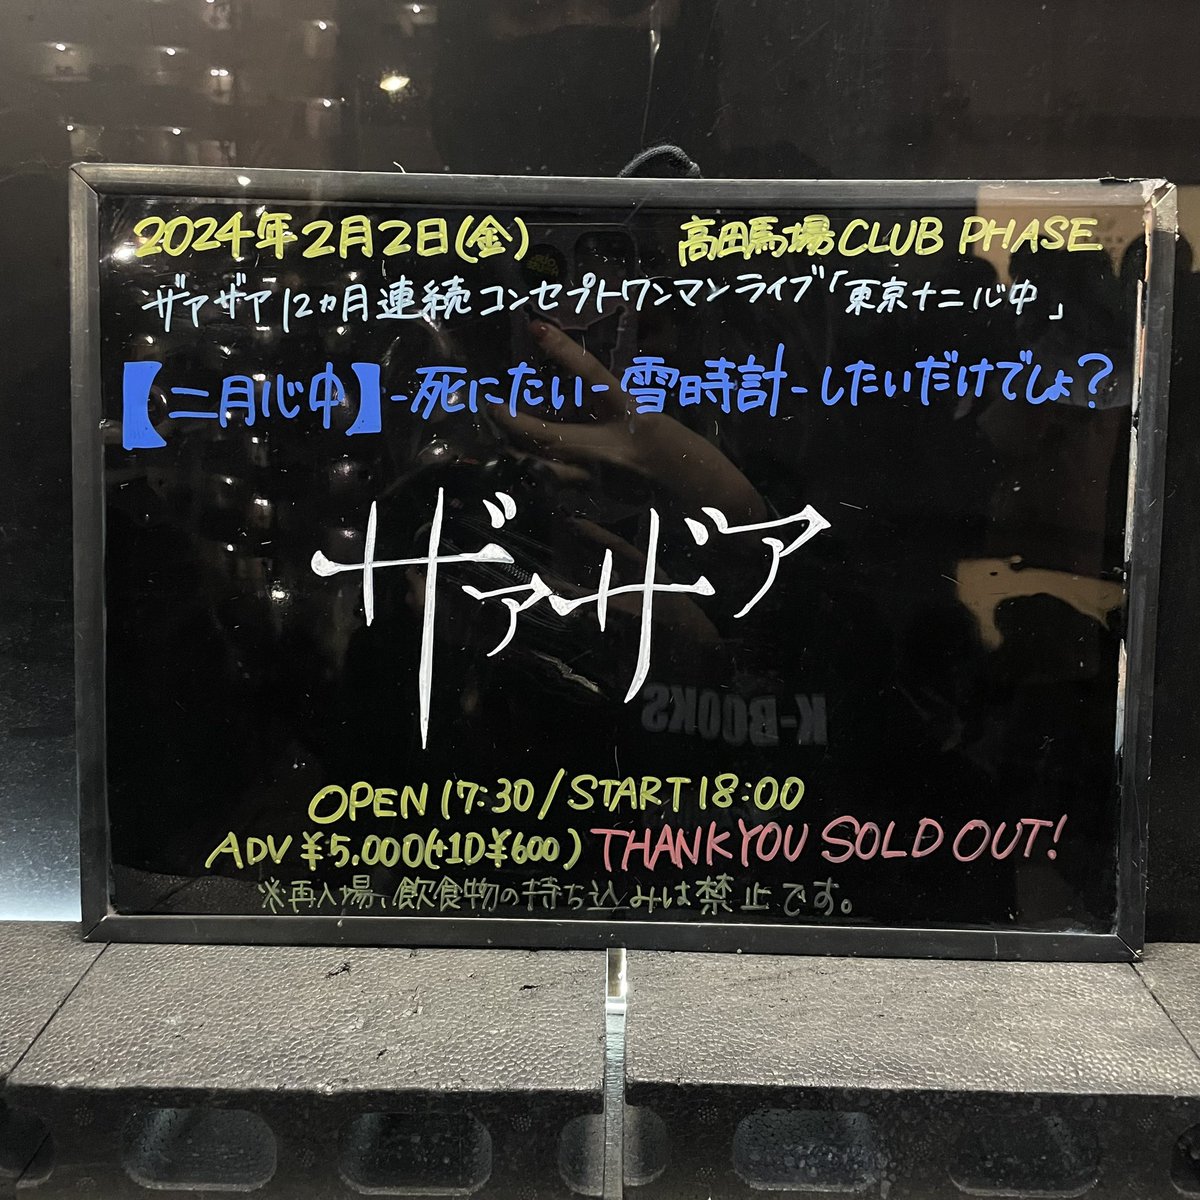 2024年2月2日(金) 高田馬場CLUB PHASE
ザアザア12ヵ月連続コンセプトワンマンライブ「東京十二心中」
【二月心中】-死にたい-雪時計-したいだけでしょ？
ザアザア
K-BOOKS
OPEN 17:30/START 18:00
ADV ¥5.000(+1D¥600) THANK YOU SOLD OUT!
※再入場、飲食物の持ち込みは禁止です。